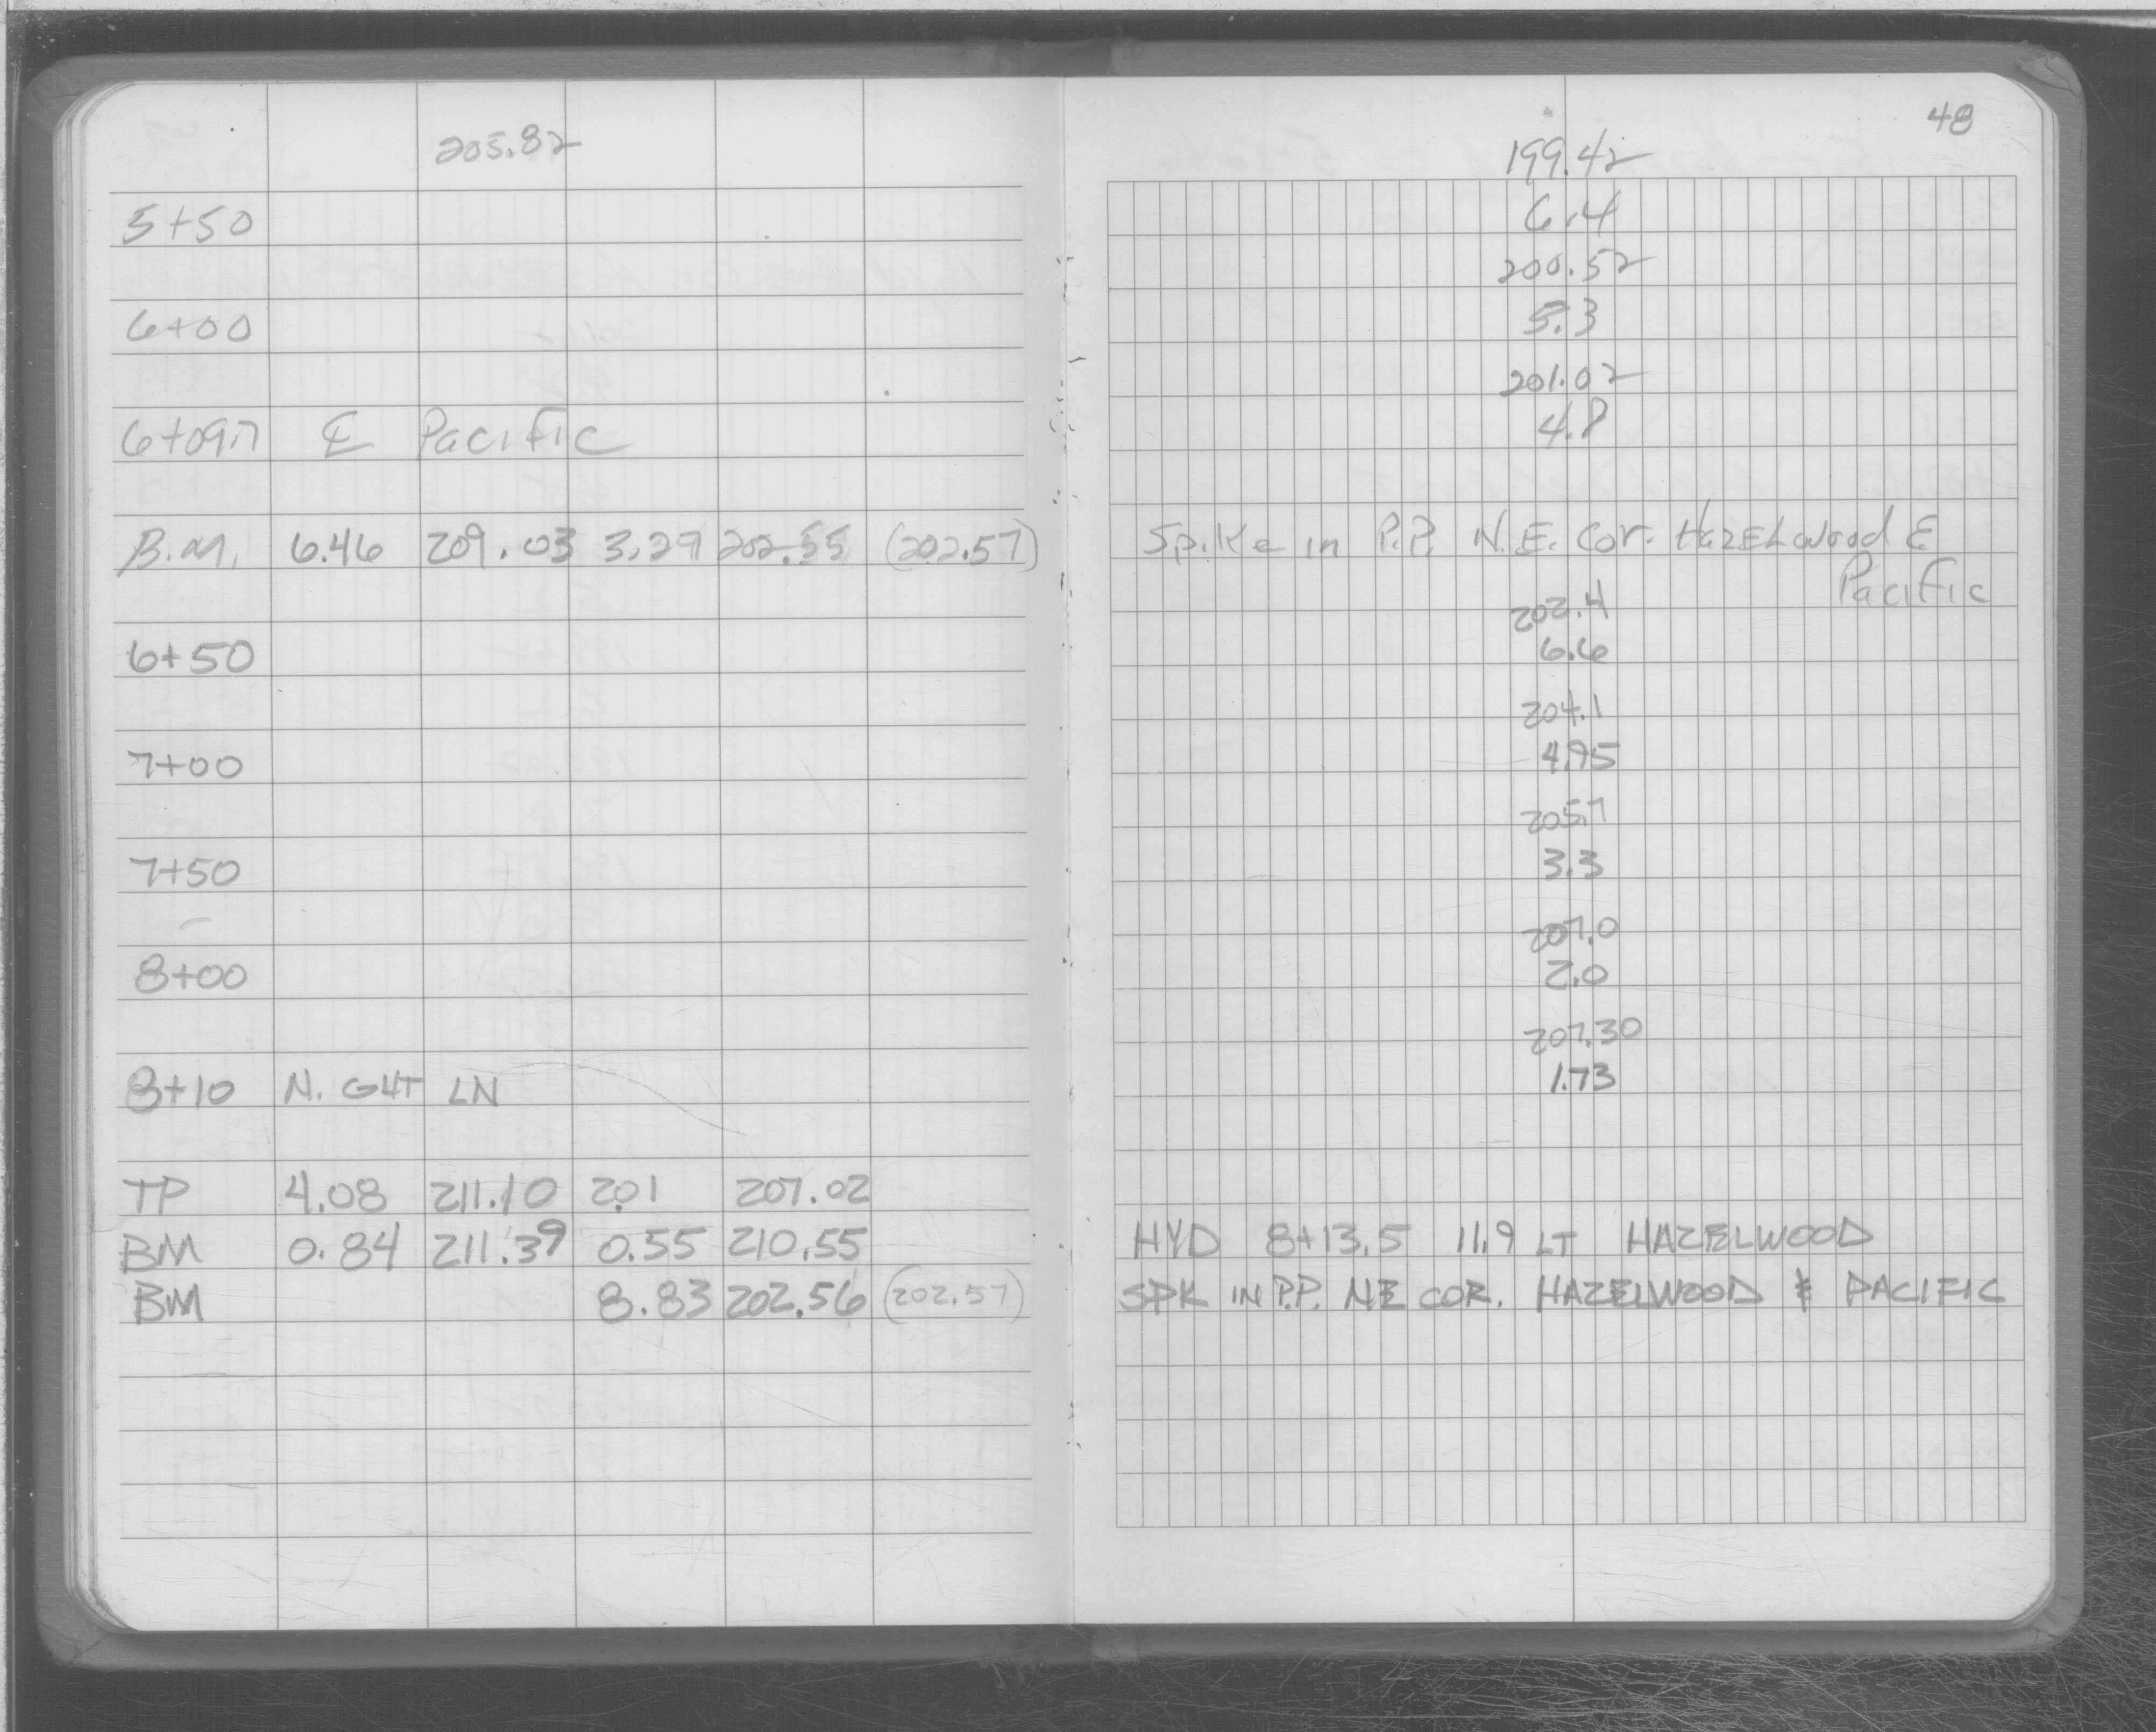 48
205.82 199.42
5+50 6.4
200.52
6+00 5.3
201.02
6+09.7 ℄ Pacific 4.8
B.M. 6.46 209.03 3.27 202.55 (202.57) Spike in P.P. N.E. Cor. HazELwood &
Pacific
202.4
6+50 6.6
204.1
7+00 4.95
205.7
7+50 3.3
207.0
8+00 2.0
207.30
8+10 N. GUT LN 1.73
TP 4.08 211.10 2.01 207.02
BM 0.84 211.39 0.55 210.55 HYD 8+13.5 11.9 LT HAZELWOOD
BM 8.83 202.56 (202.57) SPK IN P.P. NE COR. HAZELWOOD & PACIFIC